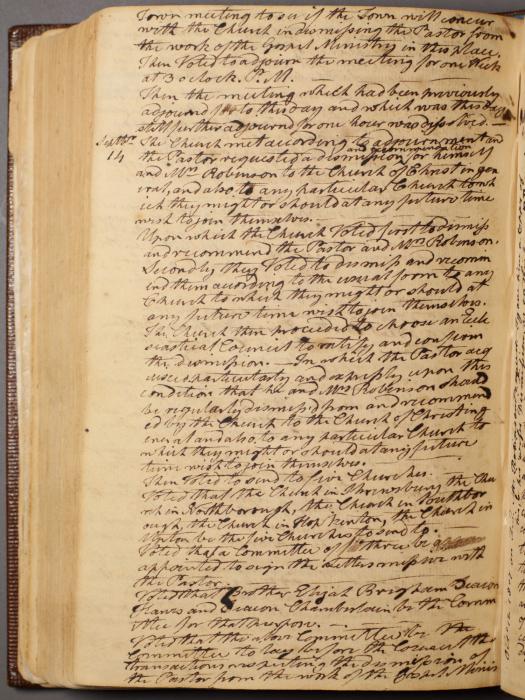 Town meeting to see if the Town will concur
with the Church in dismissing the Pastor from
the work of the Gospel Ministry in this place.
Then Voted to adjourn the meeting for one Week
at 3 oclock P.M.
Then the meeting which had been previously
adjournd to this day and which was this day
still further adjournd for one hour was dissolved.
Septbr. 14 The Church met according to adjournment and
and recommendation
the Pastor requested a dismission for himself
and Mrs. Robinson to the Church of Christ in gen
eral, and also to any particular Church to wh
ich they might or should at any future time
wish to join themselves.
Upon which the Church Voted first to dismiss
and recommend the Pastor and Mrs. Robinson.
Secondly they Voted to dismiss and recomm
end them according to the usual form to any
Church to which they might or should at
any future time wish to join themselves.
The Church then proceeded to choose an Eccle
siastical Council to ratify and confirm
the dismission. — In which the Pastor acq
uiesce particularly and expressly upon this
condition that he and Mrs. Robinson should
be regularly dismissd from and recommend
ed by the Church to the Church of Christ in g
eneral and also to any particular Church to
which they might or should at any future
time wish to join themselves.
Then Voted to send to five Churches.
Voted that the Church in Shrewsbury the Chu
rch in Northborough, the Church in Southbor
ough, the Church in Hopkinton, the Church in
Upton be the five Churches to send to.
Voted that a Committee of three be
appointed to sign the Letters missive with
the Pastor.
Voted that Brother Elijah Brigham Deacon
Hawes and Deacon Chamberlain be the Comm
ittee for that purpose.
Voted that the above Committee be the
Committee to lay before the Council the
transactions respecting the dismission of
the Pastor from the work of the Gospel Minis